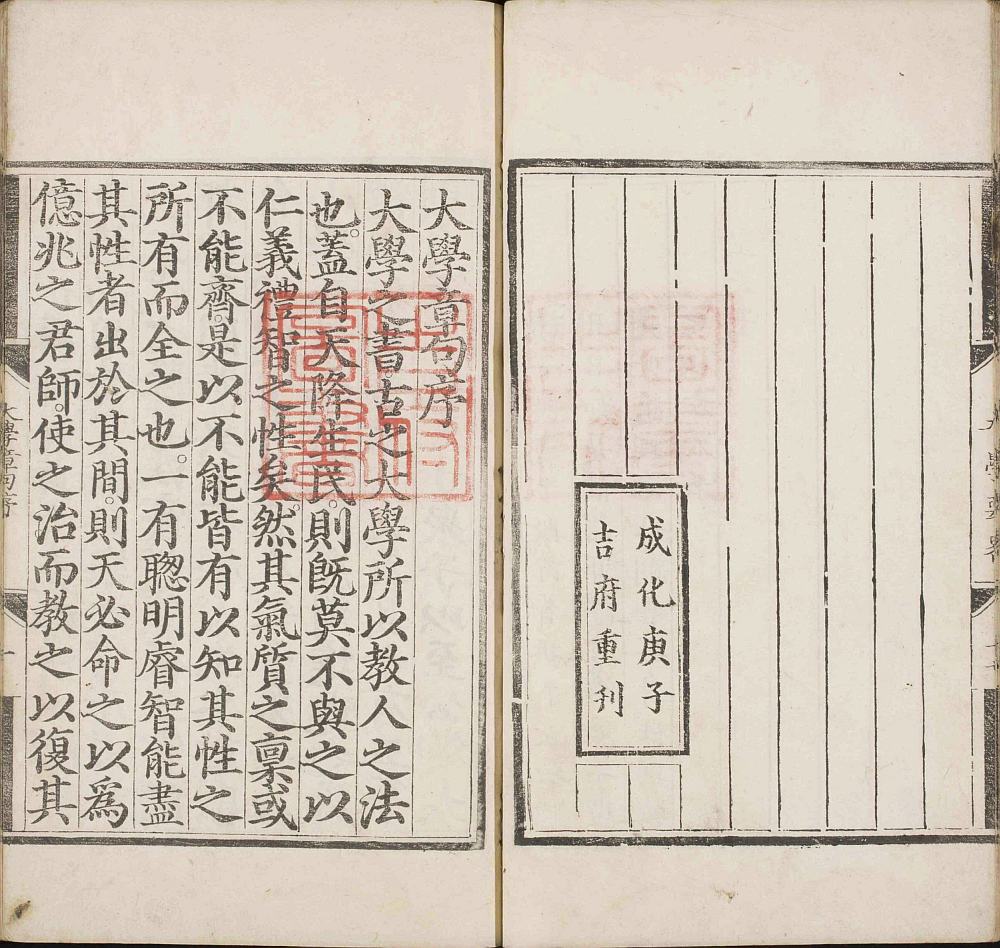 成化庚子
吉府重刋
大學章句序
大學之書古之大學所以教人之法
也。蓋自天降生民。則既莫不與之以
仁義禮智之性矣。然其氣質之稟或
不能齊。是以不能皆有以知其性之
所有而全之也。一有聰明睿智能盡
其性者出於其間。則天必命之以爲
億兆之君師。使之治而教之以復其
大學章句序